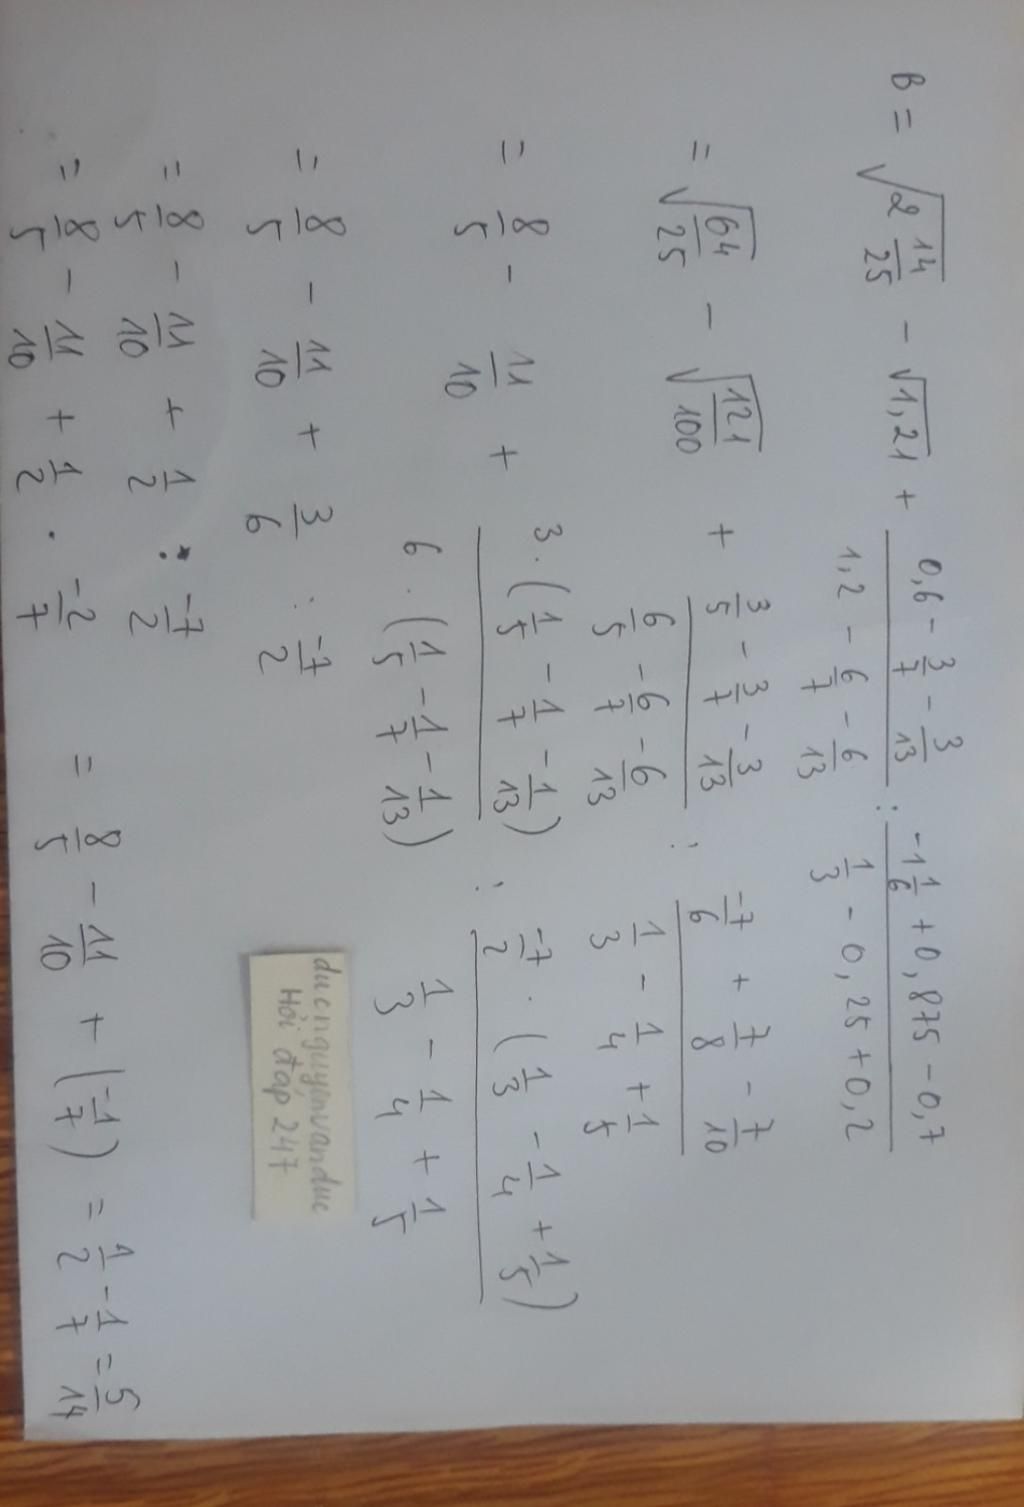 B = √(2 14/25) - √1,21 + (0,6 - 3/7 - 3/13)/(1,2 - 6/7 - 6/13) : (-1 1/6 + 0,875 - 0,7)/(1/3 - 0,25 + 0,2)
= √(64/25) - √(121/100) + (3/5 - 3/7 - 3/13)/(6/5 - 6/7 - 6/13) : (-7/6 + 7/8 - 7/10)/(1/3 - 1/4 + 1/5)
= 8/5 - 11/10 + (3 . (1/5 - 1/7 - 1/13))/(6 . (1/5 - 1/7 - 1/13)) : (-7/2 . (1/3 - 1/4 + 1/5))/(1/3 - 1/4 + 1/5)
= 8/5 - 11/10 + 3/6 : -7/2
= 8/5 - 11/10 + 1/2 : -7/2
= 8/5 - 11/10 + 1/2 . -2/7 = 8/5 - 11/10 + (-1/7) = 1/2 - 1/7 = 5/14
ducnguyenvanduc
Hỏi đáp 247